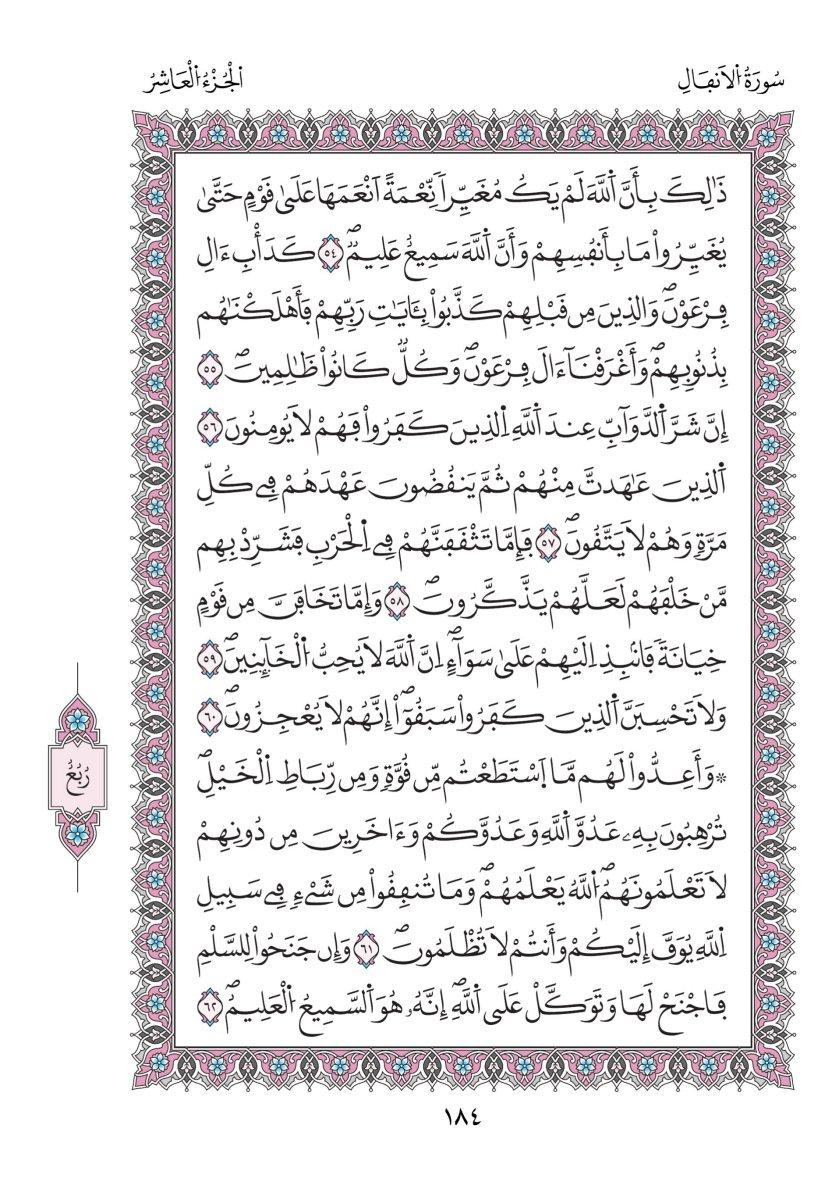 سُورَةُ اُلَانفَالِ
اُلْجُزْءُ اُلْعَاشِرُ
ذَٰلِكَ بِأَنَّ اَللَّهَ لَمْ يَكُ مُغَيِّراٗ نِّعْمَةً اَنْعَمَهَا عَلَىٰ قَوْمٍ حَتَّىٰ
يُغَيِّرُواْ مَا بِأَنفُسِهِمْ وَأَنَّ اَللَّهَ سَمِيعٌ عَلِيمٞۖ ٥٤ كَدَأْبِ ءَالِ
فِرْعَوْنَۖ وَالذِينَ مِن قَبْلِهِمْ كَذَّبُواْ بِـَٔايَٰتِ رَبِّهِمْ فَأَهْلَكْنَٰهُم
بِذُنُوبِهِمْۖ وَأَغْرَقْنَآ ءَالَ فِرْعَوْنَۖ وَكُلّٞ كَانُواْ ظَٰلِمِينَۖ ٥٥
إِنَّ شَرَّ اَلدَّوَآبِّ عِندَ اَللَّهِ اِلذِينَ كَفَرُواْ فَهُمْ لَا يُومِنُونَ ٥٦
اَلذِينَ عَٰهَدتَّ مِنْهُمْ ثُمَّ يَنقُضُونَ عَهْدَهُمْ فِے كُلِّ
مَرَّةٖ وَهُمْ لَا يَتَّقُونَۖ ٥٧ فَإِمَّا تَثْقَفَنَّهُمْ فِے اِلْحَرْبِ فَشَرِّدْ بِهِم
مَّنْ خَلْفَهُمْ لَعَلَّهُمْ يَذَّكَّرُونَۖ ٥٨ وَإِمَّا تَخَافَنَّ مِن قَوْمٍ
خِيَانَةٗ فَانۢبِذِ اِلَيْهِمْ عَلَىٰ سَوَآءٍۖ اِنَّ اَللَّهَ لَا يُحِبُّ اُلْخَآئِنِينَۖ ٥٩
وَلَا تَحْسِبَنَّ اَلذِينَ كَفَرُواْ سَبَقُوٓاْۖ إِنَّهُمْ لَا يُعْجِزُونَۖ ٦٠
* وَأَعِدُّواْ لَهُم مَّا اَسْتَطَعْتُم مِّن قُوَّةٖ وَمِن رِّبَاطِ اِلْخَيْلِۖ
تُرْهِبُونَ بِهِۦ عَدُوَّ اَللَّهِ وَعَدُوَّكُمْ وَءَاخَرِينَ مِن دُونِهِمْ
لَا تَعْلَمُونَهُمُۖ اُللَّهُ يَعْلَمُهُمْۖ وَمَا تُنفِقُواْ مِن شَےْءٖ فِے سَبِيلِ
اِللَّهِ يُوَفَّ إِلَيْكُمْ وَأَنتُمْ لَا تُظْلَمُونَۖ ٦١ وَإِن جَنَحُواْ لِلسَّلْمِ
فَاجْنَحْ لَهَا وَتَوَكَّلْ عَلَى اَللَّهِۖ إِنَّهُۥ هُوَ اَلسَّمِيعُ اُلْعَلِيمُۖ ٦٢
رُبُعُ
١٨٤